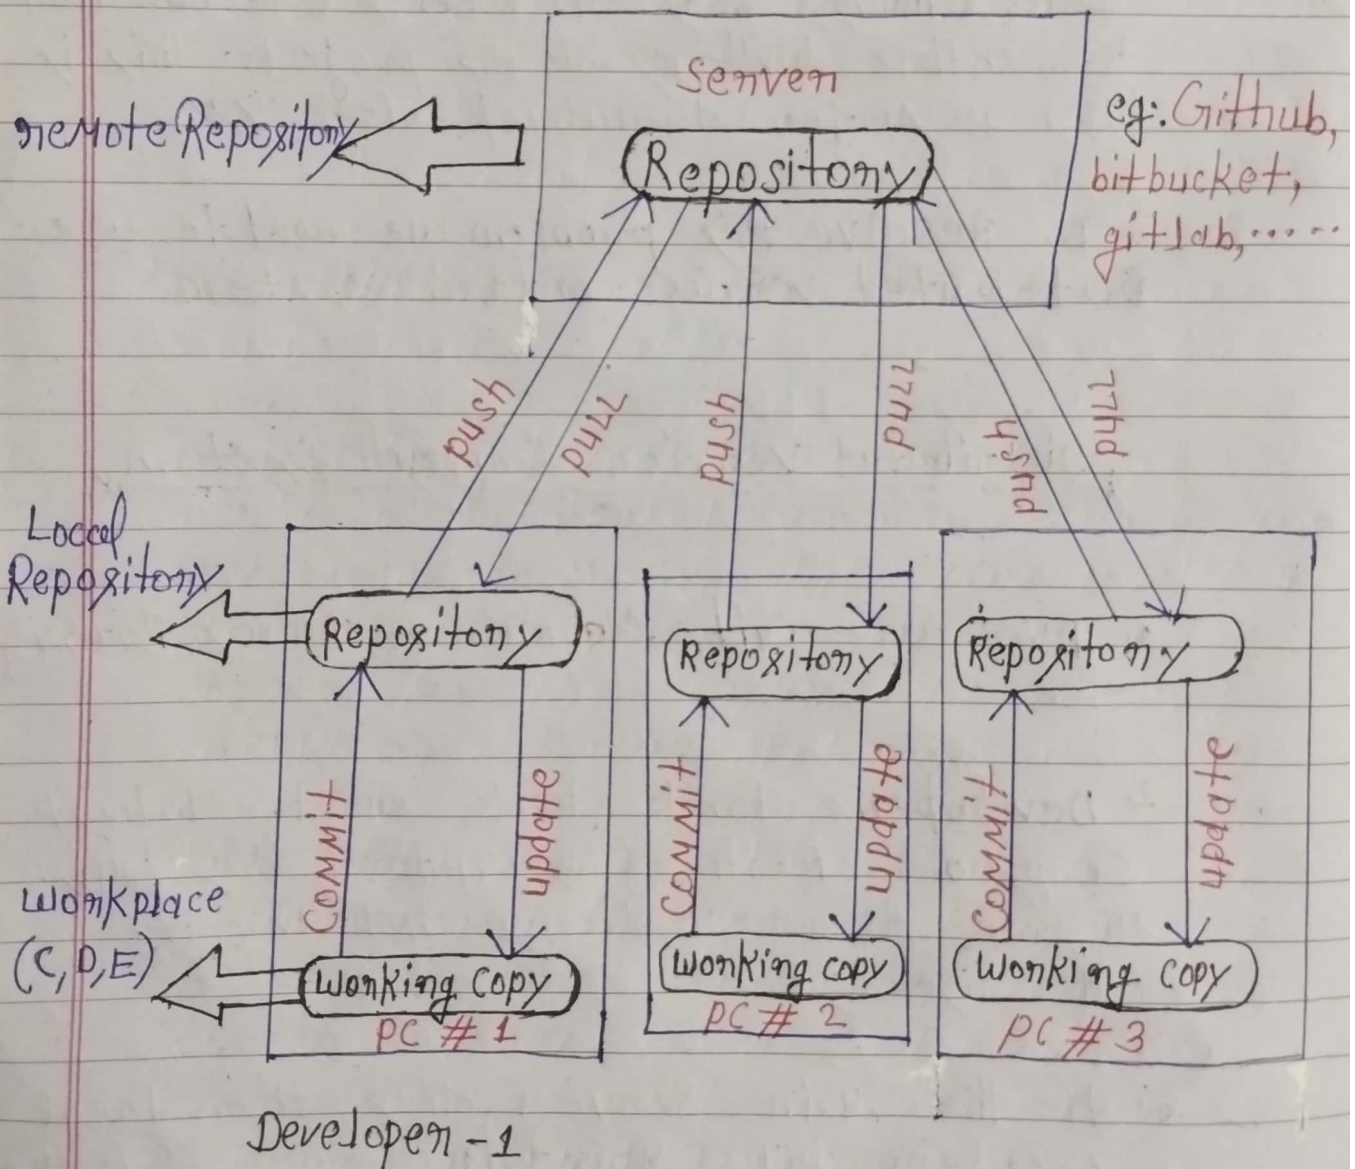 Server
remote Repository
Repository
eg: Github,
bitbucket,
gitlab,......
push
pull
push
pull
push
pull
Local
Repository
Repository
Repository
Repository
Commit
update
Commit
update
Commit
update
workplace
(C,D,E)
working copy
working copy
working copy
PC # 1
PC # 2
PC # 3
Developer - 1